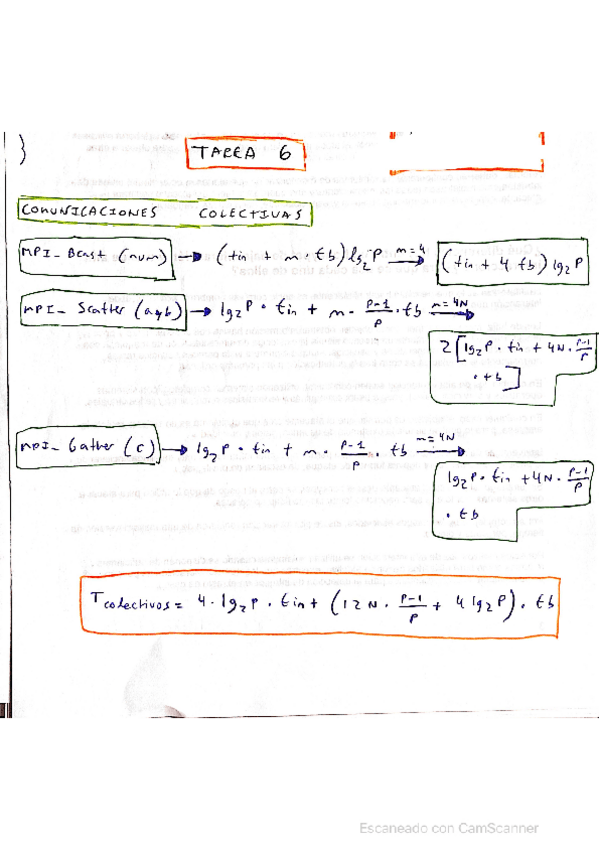 TAREA 6
COMUNICACIONES COLECTIVAS
MPI_Bcast (num) → (tin + m · tb) lg₂ P m=4 → (tin + 4 tb) lg₂ P
MPI_ Scatter (a y b) → lg₂ P · tin + m · P-1/P · tb m=4N →
2 [lg₂ P · tin + 4N · P-1/P
· tb]
MPI_ Gather (c) → lg₂ P · tin + m · P-1/P · tb m=4N →
lg₂ P · tin + 4N · P-1/P
· tb
T colectivos = 4 · lg₂ P · tin + (12N · P-1/P + 4 lg₂ P) · tb
Escaneado con CamScanner